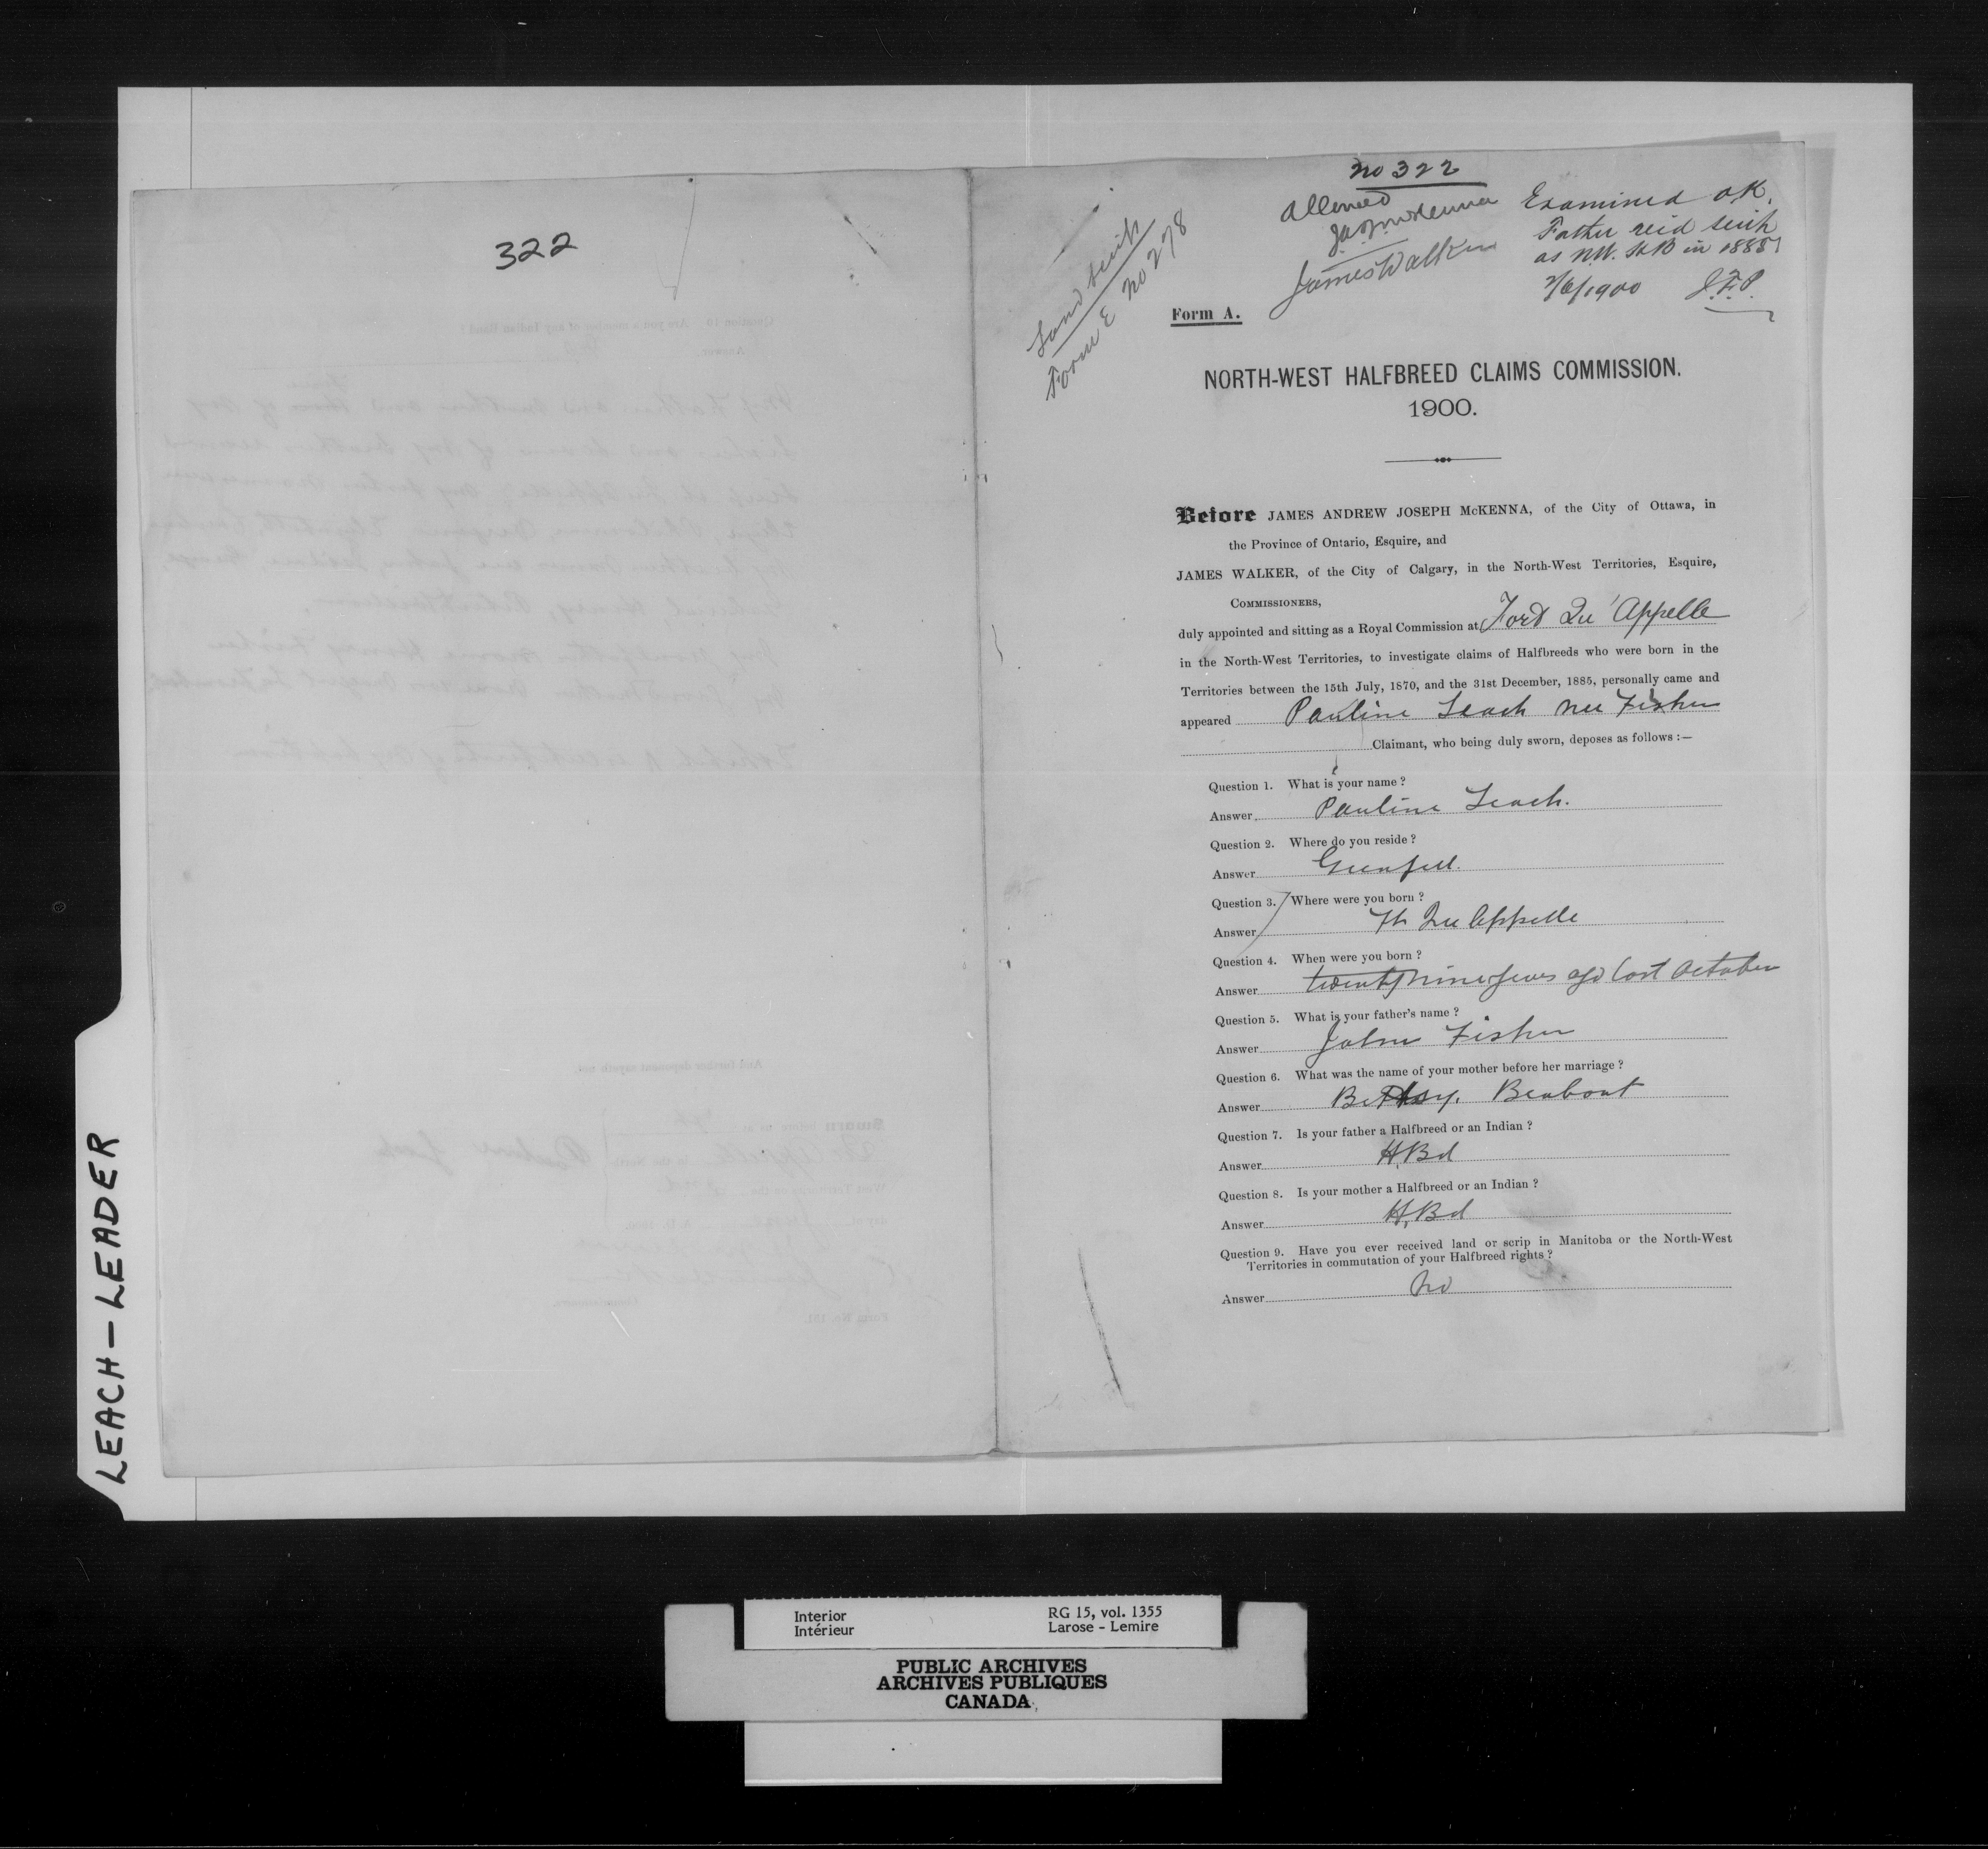 322
Land Scrip
Form E No 278
No 322
Allowed
J.A.J. McKenna
James Walker
Examined O.K.
Father rec'd scrip
as N.W. H.B in 1885
2/6/1900 J.F.P.
Form A.
NORTH-WEST HALFBREED CLAIMS COMMISSION.
1900.
Before JAMES ANDREW JOSEPH McKENNA, of the City of Ottawa, in
the Province of Ontario, Esquire, and
JAMES WALKER, of the City of Calgary, in the North-West Territories, Esquire,
COMMISSIONERS,
duly appointed and sitting as a Royal Commission at Fort Qu'Appelle
in the North-West Territories, to investigate claims of Halfbreeds who were born in the
Territories between the 15th July, 1870, and the 31st December, 1885, personally came and
appeared Pauline Leach nee Fisher
Claimant, who being duly sworn, deposes as follows :—
Question 1. What is your name ?
Answer Pauline Leach.
Question 2. Where do you reside ?
Answer Grenfell.
Question 3. Where were you born ?
Answer Ft Qu Appelle
Question 4. When were you born ?
Answer twenty nine years ago last October
Question 5. What is your father's name ?
Answer John Fisher
Question 6. What was the name of your mother before her marriage ?
Answer Betsy. Brabant
Question 7. Is your father a Halfbreed or an Indian ?
Answer H.Bd
Question 8. Is your mother a Halfbreed or an Indian ?
Answer H.Bd
Question 9. Have you ever received land or scrip in Manitoba or the North-West
Territories in commutation of your Halfbreed rights ?
Answer No
LEACH-LEADER
Interior RG 15, vol. 1355
Intérieur Larose - Lemire
PUBLIC ARCHIVES
ARCHIVES PUBLIQUES
CANADA